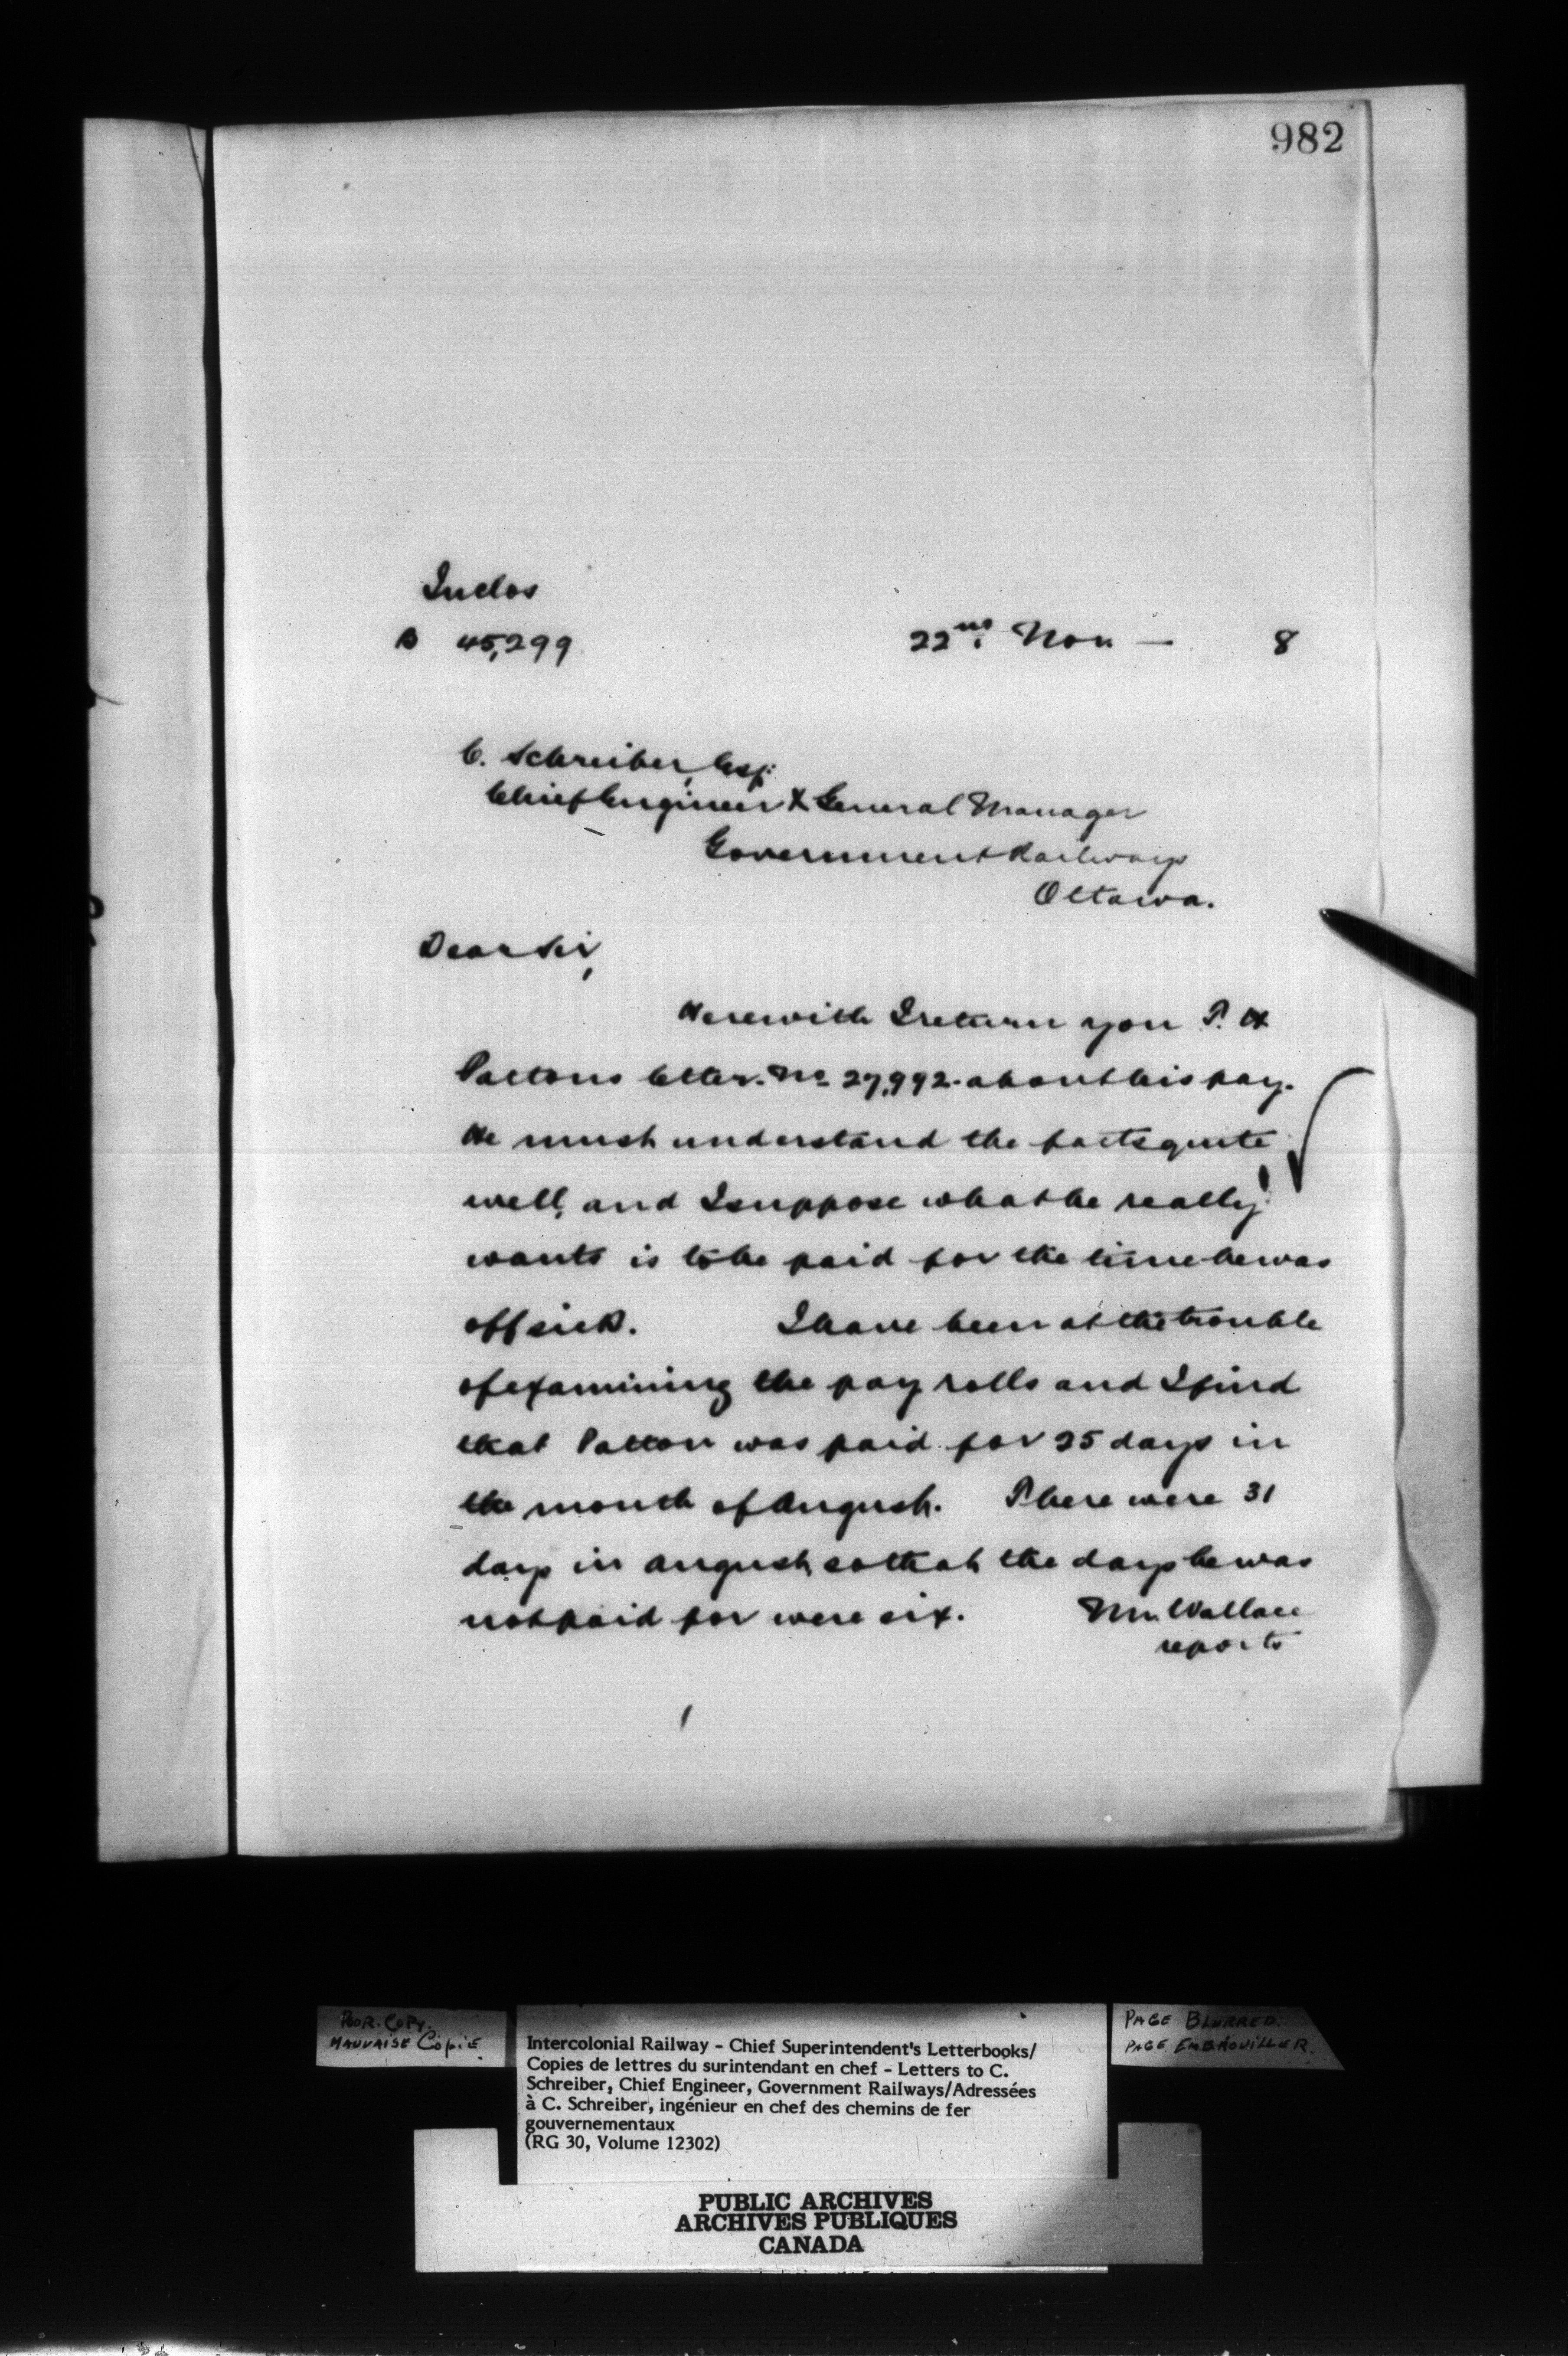 982
Inclos
B 45,299
22nd. Nov — 8
C. Schreiber, Esq:
Chief Engineer & General Manager
Government Railways
Ottawa.
Dear Sir,
Herewith I return you T. H
Pattons letter. No 27,992. about his pay.
He must understand the facts quite
well, and I suppose what he really
wants is to be paid for the time he was
off sick. I have been at the trouble
of examining the pay rolls and I find
that Patton was paid for 25 days in
the month of August. There were 31
days in August, so that the days he was
not paid for were six. Mr. Wallace
reports
POOR. COPY.
MAUVAISE COPiE
Intercolonial Railway - Chief Superintendent's Letterbooks/
Copies de lettres du surintendant en chef - Letters to C.
Schreiber, Chief Engineer, Government Railways/Adressées
à C. Schreiber, ingénieur en chef des chemins de fer
gouvernementaux
(RG 30, Volume 12302)
PAGE BLURRED.
PAGE EMBROUILLER.
PUBLIC ARCHIVES
ARCHIVES PUBLIQUES
CANADA